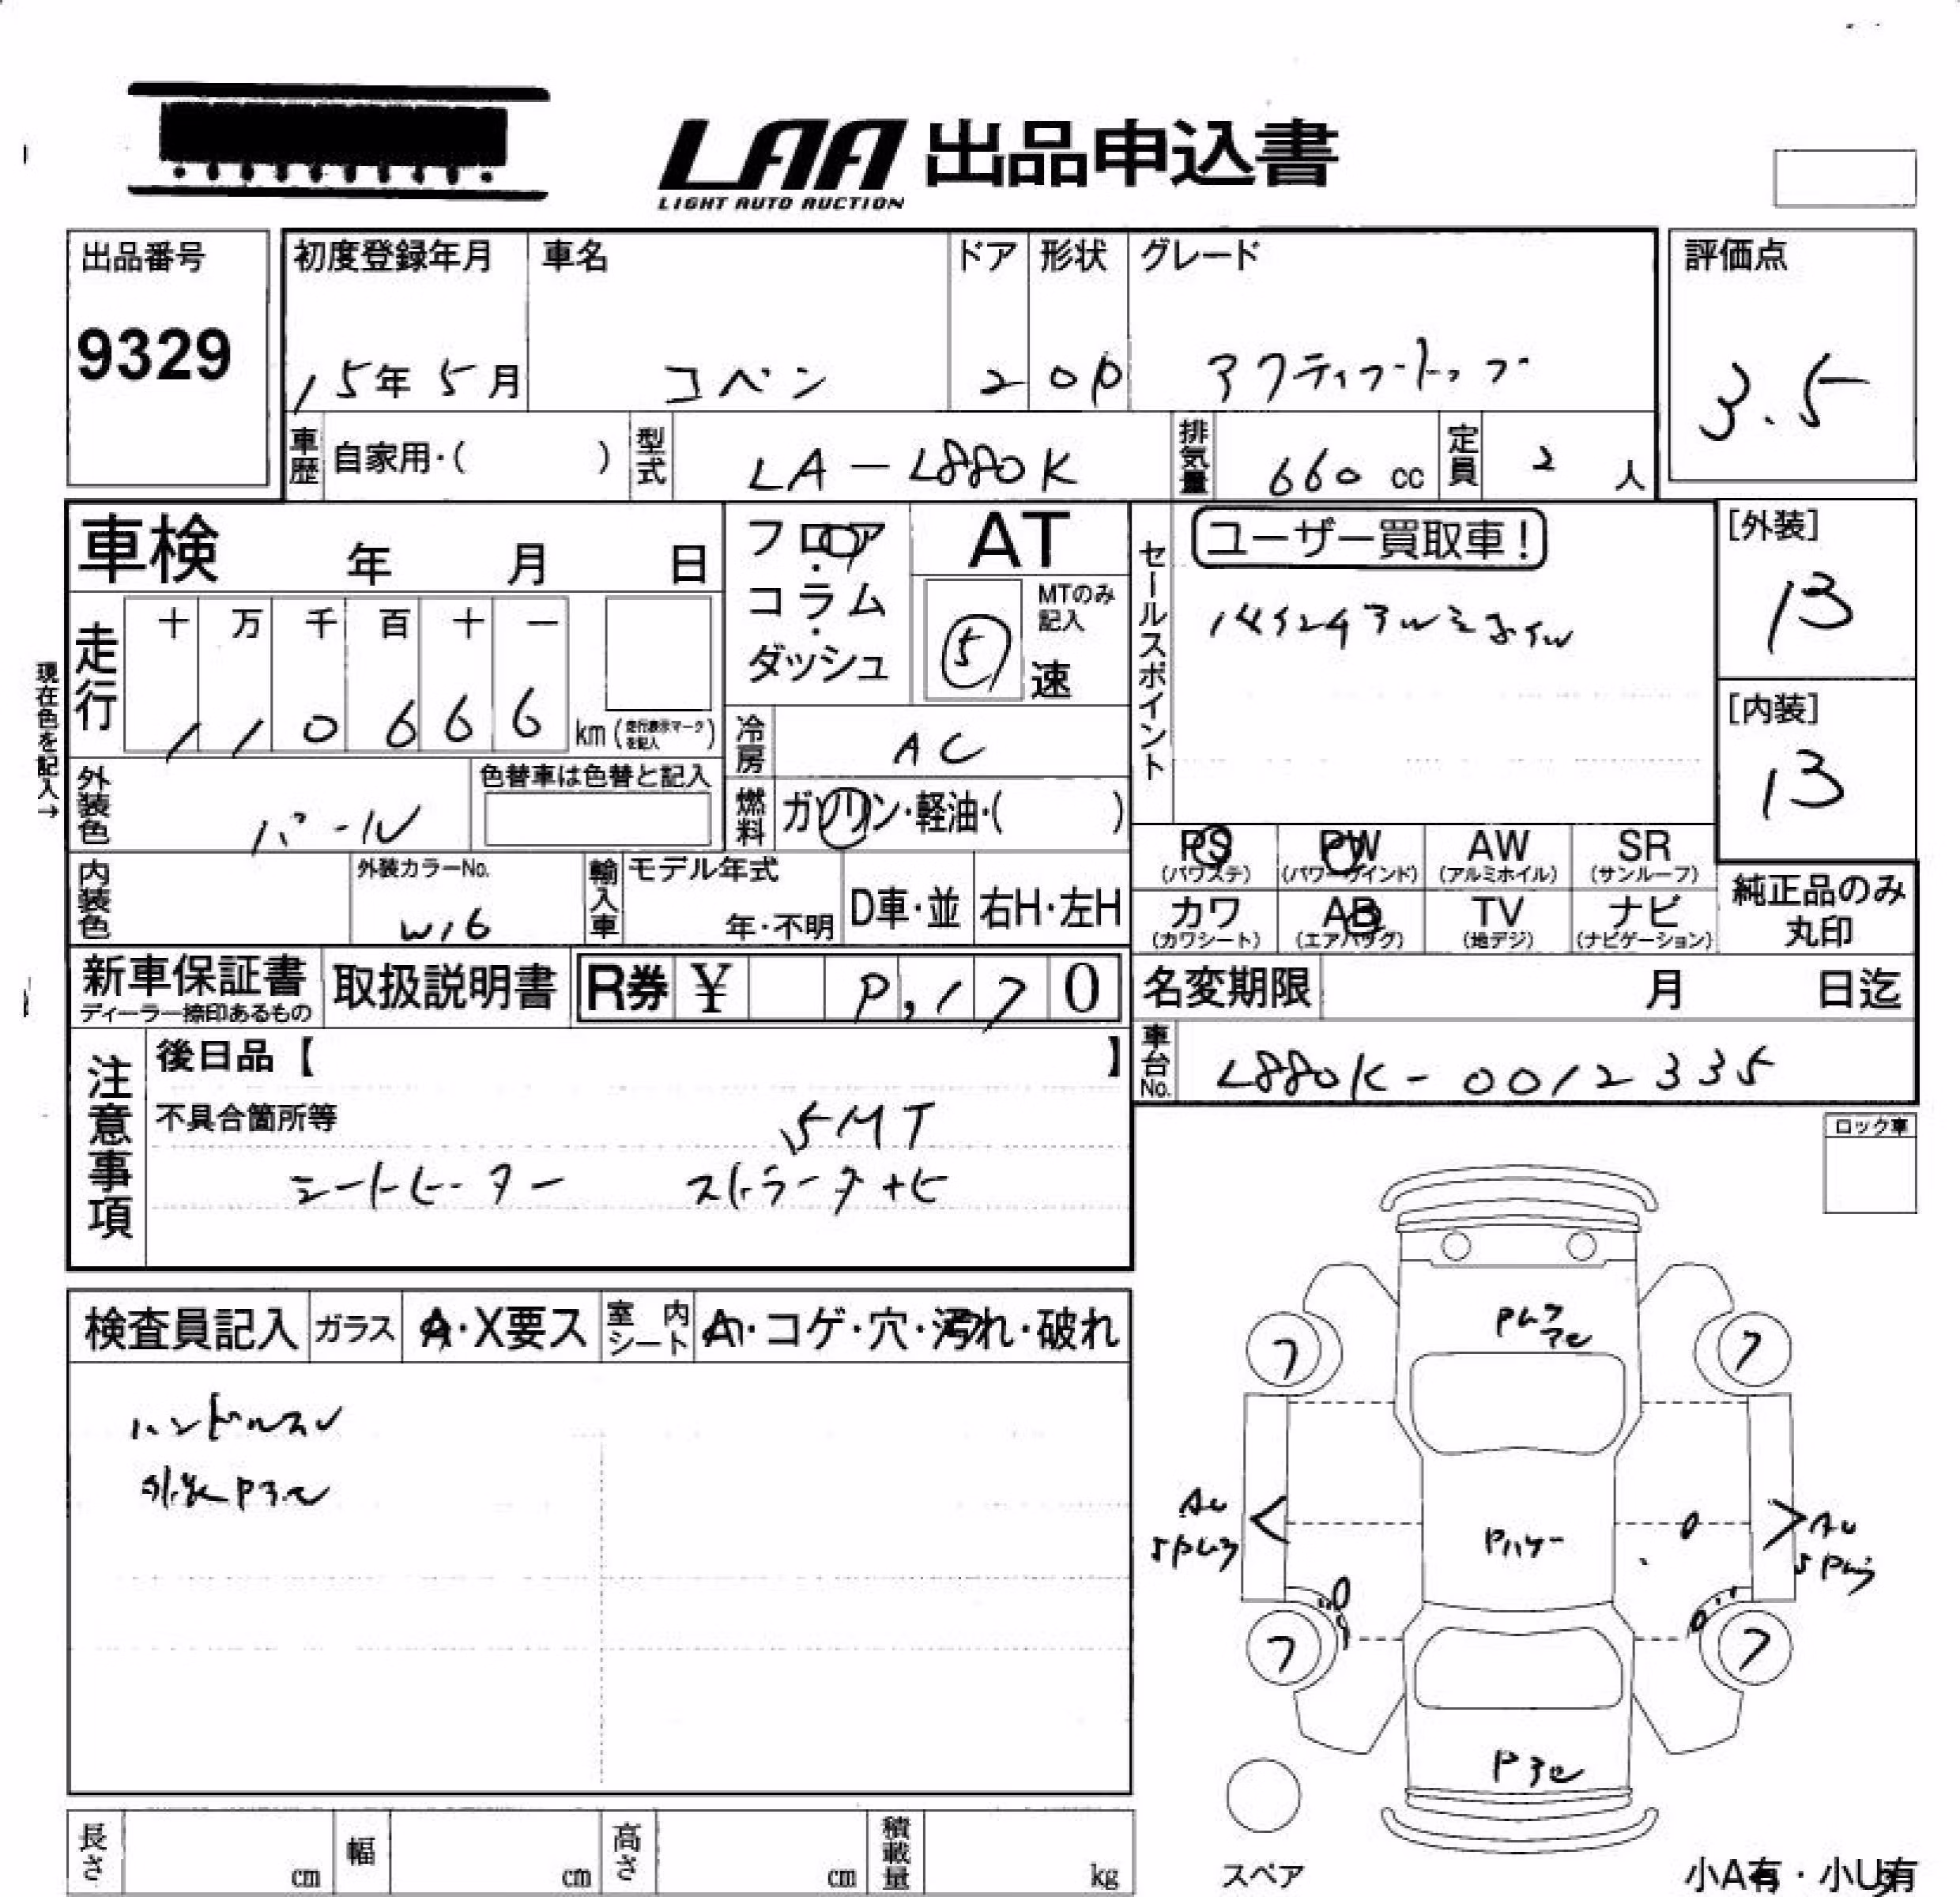 LAA 出品申込書
LIGHT AUTO AUCTION
出品番号
9329
初度登録年月
15年 5月
車名
コペン
ドア
2
形状
OP
グレード
アクティブトップ
評価点
3.5
車歴 自家用・( )
型式 LA-L880K
排気量 660 cc
定員 2 人
車検 年 月 日
走行 十 万 千 百 十 一
1 1 0 6 6 6 km (走行表示マークを記入)
現在色を記入→
外装色 パール
色替車は色替と記入
内装色
外装カラーNo.
W16
輸入車 モデル年式
年・不明
D車・並
右H・左H
フロア・コラム・ダッシュ
AT
MTのみ記入
5 速
冷房 AC
燃料 ガソリン・軽油・( )
セールスポイント
ユーザー買取車!
[外装]
13
[内装]
13
PS (パワステ)
PW (パワーウインド)
AW (アルミホイル)
SR (サンルーフ)
カワ (カワシート)
AB (エアバッグ)
TV (地デジ)
ナビ (ナビゲーション)
純正品のみ丸印
新車保証書
ディーラー捺印あるもの
取扱説明書
R券 ¥ 170
名変期限 月 日迄
車台No. L880K-0012335
注意事項
後日品【 】
不具合箇所等
5MT
シートヒーター
ロック車
検査員記入
ガラス
A・X要ス
室内シート
・コゲ・穴・汚れ・破れ
ハンドルスレ
7
7
7
7
スペア
小A有・小U有
長さ cm
幅 cm
高さ cm
積載量 kg